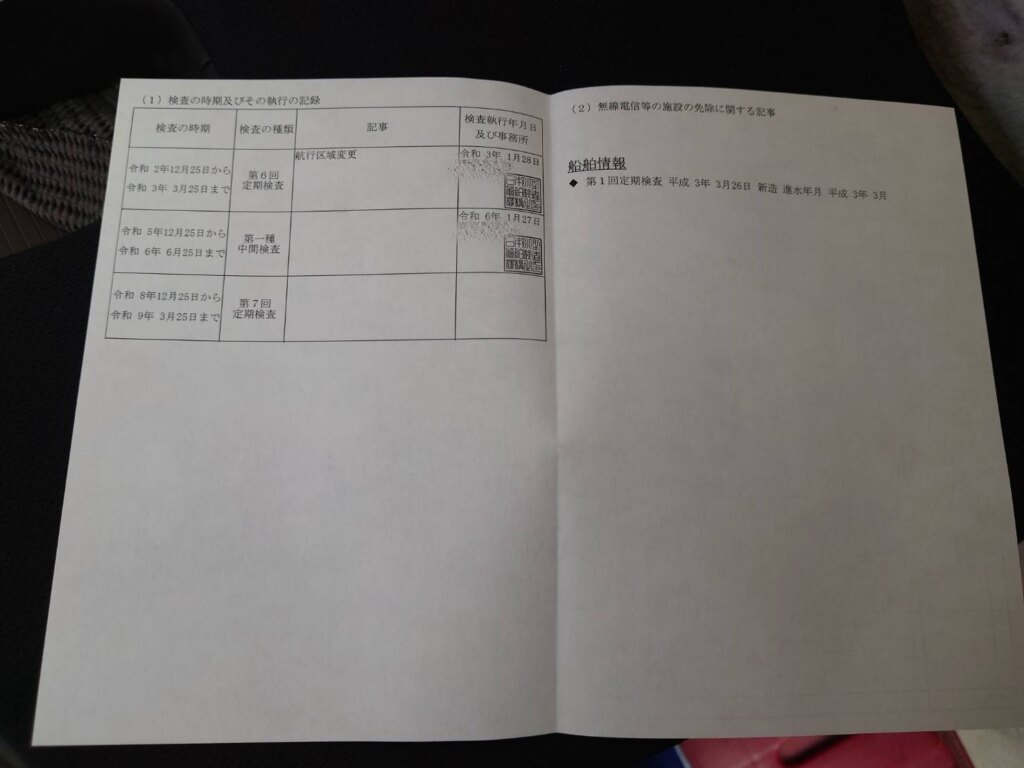 (1) 検査の時期及びその執行の記録
検査の時期
検査の種類
記事
検査執行年月日
及び事務所
令和 2年12月25日から
令和 3年 3月25日まで
第6回
定期検査
航行区域変更
令和 3年 1月28日
令和 5年12月25日から
令和 6年 6月25日まで
第一種
中間検査
令和 6年 1月27日
令和 8年12月25日から
令和 9年 3月25日まで
第7回
定期検査
(2) 無線電信等の施設の免除に関する記事
船舶情報
◆ 第1回定期検査 平成 3年 3月26日 新造 進水年月 平成 3年 3月